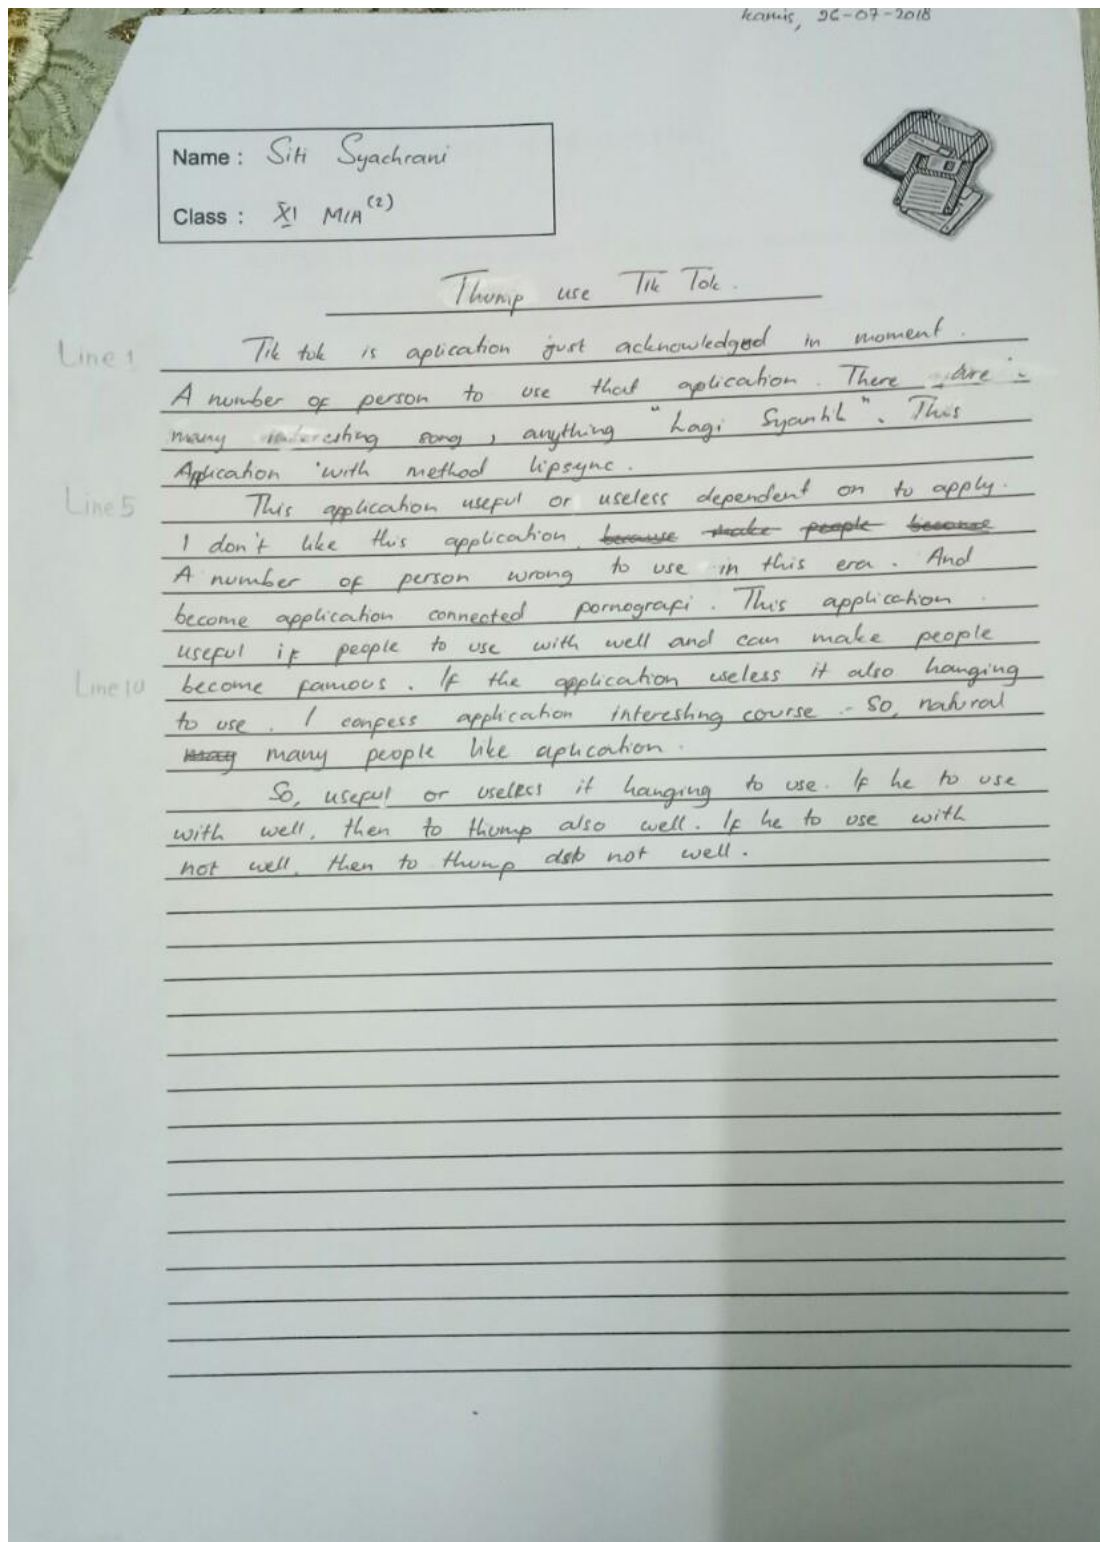 kamis, 26-07-2018
Name : Siti Syachrani
Class : XI MIA (2)
Thump use Tik Tok.
Line 1 Tik tok is aplication just acknowledged in moment.
A number of person to use that aplication. There are
many interesting song, anything "Lagi Syantik". This
Application with method lipsync.
Line 5 This application useful or useless dependent on to apply.
I don't like this application, because make people become
A number of person wrong to use in this era. And
become application connected pornografi. This application
useful if people to use with well and can make people
Line 10 become famous. If the application useless it also hanging
to use. I confess application interesting course. So, natural
many many people like aplication.
So, useful or useless it hanging to use. If he to use
with well, then to thump also well. If he to use with
not well, then to thump not well.